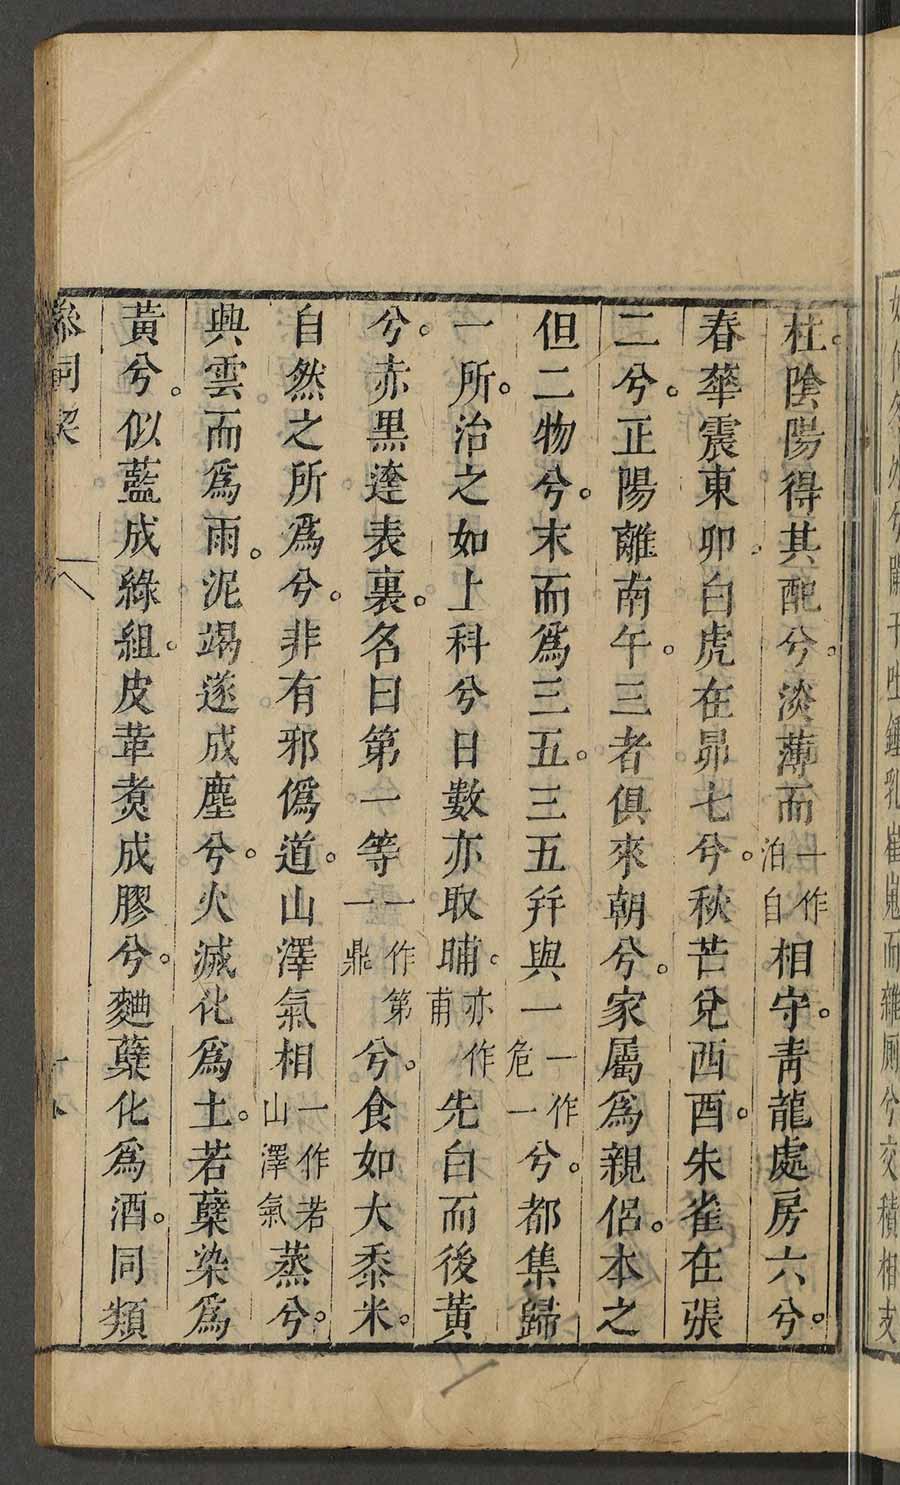 柱。陰陽得其配兮。淡薄而一作泊自相守。靑龍處房六兮。
春華震東卯。白虎在昴七兮。秋芒兌西酉。朱雀在張
二兮。正陽離南午。三者俱來朝兮。家屬爲親侶。本之
但二物兮。末而爲三五。三五幷與一一作危一兮。都集歸
一所。治之如上科兮日數亦取晡。亦作甫先白而後黃
兮。赤黑達表裏。名曰第一等一作第一鼎兮。食如大黍米。
自然之所爲兮。非有邪僞道。山澤氣相一作若山澤氣蒸兮。
興雲而爲雨。泥竭遂成塵兮。火滅化爲土。若蘗染爲
黃兮。似藍成綠組。皮革煑成膠兮。麯蘖化爲酒。同類
參同契